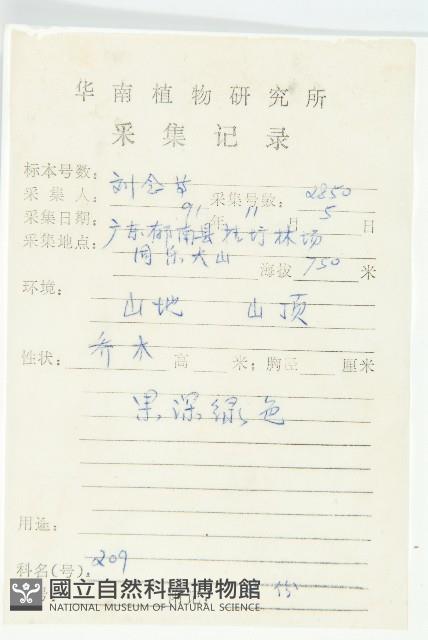 华南植物研究所
采集记录
标本号数：
采集人：刘念 采集号数：2850
采集日期：91年11月5日
采集地点：广东郁南县桂圩林场
同乐大山
海拔750米
环境：
山地 山顶
性状：乔木 高 米；胸径 厘米
果深绿色
用途：
科名(号)：209
國立自然科學博物館
NATIONAL MUSEUM OF NATURAL SCIENCE